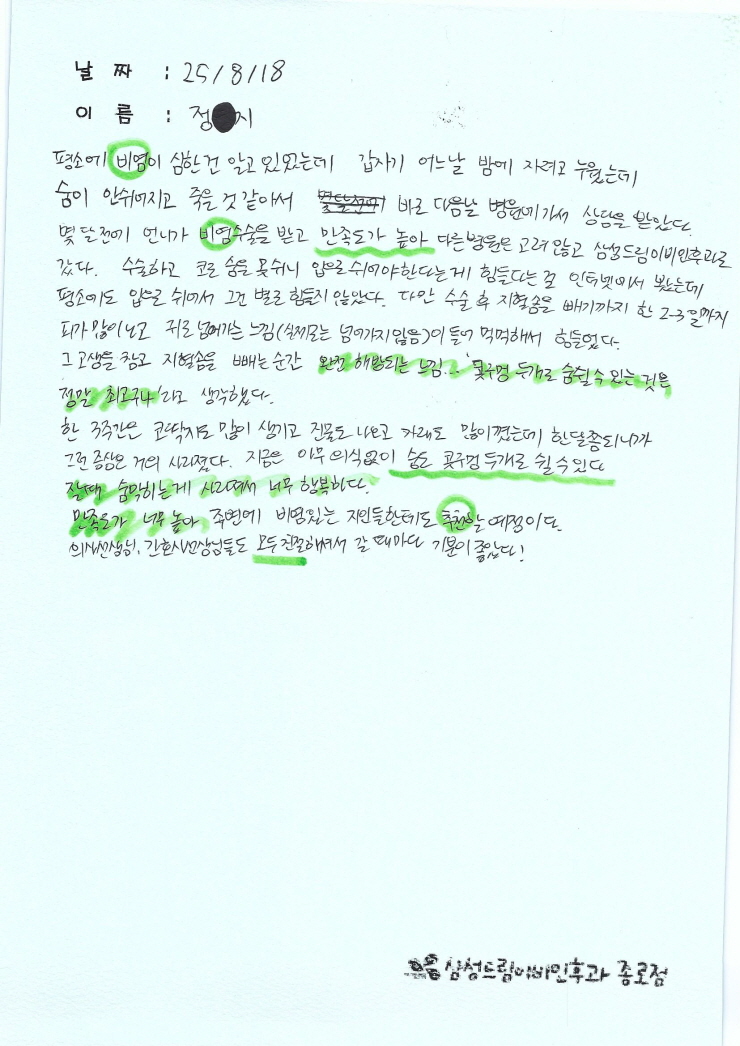 날 짜 : 25/8/18
이 름 : 정 시
평소에 비염이 심한건 알고 있었는데 갑자기 어느날 밤에 자려고 누웠는데
숨이 안쉬어지고 죽을 것 같아서 바로 다음날 병원에가서 상담을 받았다.
몇 달전에 언니가 비염수술을 받고 만족도가 높아 다른병원은 고려않고 삼성드림이비인후과로
갔다. 수술하고 코로 숨을 못쉬니 입으로 쉬어야한다는게 힘들다는 걸 인터넷에서 봤는데
평소에도 입으로 쉬어서 그건 별로 힘들지 않았다. 다만 수술 후 지혈솜을 빼기까지 한 2-3일까지
피가 많이 나고 귀로 넘어가는 느낌(실제로는 넘어가지 않음)이 들어 먹먹해서 힘들었다.
그 고생을 참고 지혈솜을 빼는 순간 완전 해방되는 느낌... '콧구멍 두개로 숨쉴수 있는 것은
정말 최고구나'라고 생각했다.
한 3주간은 코딱지도 많이 생기고 진물도 나오고 가래도 많이 꼈는데 한달쯤되니까
그런 증상은 거의 사라졌다. 지금은 아무 의식없이 숨도 콧구멍 두개로 쉴 수 있다
잘때 숨막히는게 사라져서 너무 행복하다.
만족도가 너무 높아 주변에 비염있는 지인들한테도 추천할 예정이다.
의사선생님, 간호사선생님들도 모두 친절하셔서 갈 때마다 기분이 좋았다!
삼성드림이비인후과 종로점